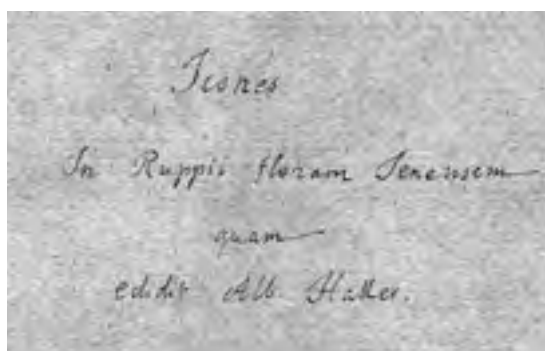 Icones
In Ruppii floram Jenensem
quam
edidit Alb. Haller.